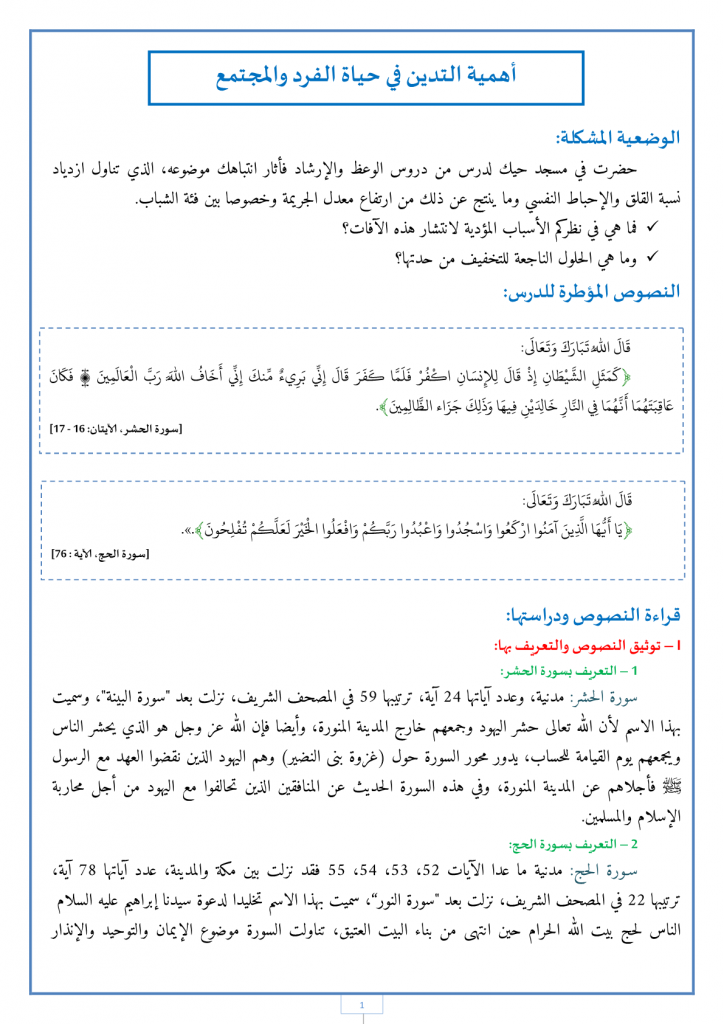 أهمية التدين في حياة الفرد والمجتمع
الوضعية المشكلة:
حضرت في مسجد حيك لدرس من دروس الوعظ والإرشاد فأثار انتباهك موضوعه، الذي تناول ازدياد
نسبة القلق والإحباط النفسي وما ينتج عن ذلك من ارتفاع معدل الجريمة وخصوصا بين فئة الشباب.
✓ فما هي في نظركم الأسباب المؤدية لانتشار هذه الآفات؟
✓ وما هي الحلول الناجعة للتخفيف من حدتها؟
النصوص المؤطرة للدرس:
قَالَ اللهُ تَبَارَكَ وَتَعَالَى:
﴿كَمَثَلِ الشَّيْطَانِ إِذْ قَالَ لِلإِنسَانِ اكْفُرْ فَلَمَّا كَفَرَ قَالَ إِنِّي بَرِيءٌ مِّنكَ إِنِّي أَخَافُ اللهَ رَبَّ الْعَالَمِينَ ۞ فَكَانَ
عَاقِبَتَهُمَا أَنَّهُمَا فِي النَّارِ خَالِدَيْنِ فِيهَا وَذَلِكَ جَزَاء الظَّالِمِينَ﴾.
[سورة الحشر، الآيتان: 16 - 17]
قَالَ اللهُ تَبَارَكَ وَتَعَالَى:
﴿يَا أَيُّهَا الَّذِينَ آمَنُوا ارْكَعُوا وَاسْجُدُوا وَاعْبُدُوا رَبَّكُمْ وَافْعَلُوا الْخَيْرَ لَعَلَّكُمْ تُفْلِحُونَ﴾.».
[سورة الحج، الآية : 76]
قراءة النصوص ودراستها:
I – توثيق النصوص والتعريف بها:
1 – التعريف بسورة الحشر:
سورة الحشر: مدنية، وعدد آياتها 24 آية، ترتيبها 59 في المصحف الشريف، نزلت بعد "سورة البينة"، وسميت
بهذا الاسم لأن الله تعالى حشر اليهود وجمعهم خارج المدينة المنورة، وأيضا فإن الله عز وجل هو الذي يحشر الناس
ويجمعهم يوم القيامة للحساب، يدور محور السورة حول (غزوة بنى النضير) وهم اليهود الذين نقضوا العهد مع الرسول
ﷺ فأجلاهم عن المدينة المنورة، وفي هذه السورة الحديث عن المنافقين الذين تحالفوا مع اليهود من أجل محاربة
الإسلام والمسلمين.
2 – التعريف بسورة الحج:
سورة الحج: مدنية ما عدا الآيات 52، 53، 54، 55 فقد نزلت بين مكة والمدينة، عدد آياتها 78 آية،
ترتيبها 22 في المصحف الشريف، نزلت بعد "سورة النور"، سميت بهذا الاسم تخليدا لدعوة سيدنا إبراهيم عليه السلام
الناس لحج بيت الله الحرام حين انتهى من بناء البيت العتيق، تناولت السورة موضوع الإيمان والتوحيد والإنذار
1